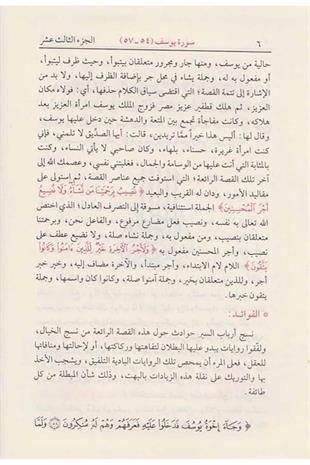 ٦ سورة يوسف (٥٤ - ٥٧) الجزء الثالث عشر
حالية من يوسف، ومنها جار ومجرور متعلقان بيتبوأ، وحيث ظرف ليتبوأ،
أو مفعول به له، وجملة يشاء في محل جر بإضافة الظرف إليها، ولا بد من
الإشارة إلى تتمة القصة؛ التي اقتضى سياق الكلام حذفها، أي: فولاه مكان
العزيز، ثم هلك قطفير عزيز مصر فزوج الملك يوسف امرأة العزيز بعد
هلاكه، وكانت مفاجأة تجمع بين المتعة والدهشة حين دخل عليها يوسف،
وقال لها: أليس هذا خيراً ممّا تريدين، قالت: أيها الصدّيق لا تلمني، فإني
كنت امرأة غريرة، حسناء، بلهاء، وكان صاحبي لا يأتي النساء، وكنت
بالمثابة التي أنت عليها من الوسامة والجمال، فغلبتني نفسي، وعصمك الله إلى
آخر تلك القصة الرائعة؛ التي استوفت جميع عناصر القصة، ثم استولى على
مقاليد الأمور، ودان له القريب والبعيد ﴿ نُصِيبُ بِرَحْمَتِنَا مَن نَّشَاءُ وَلَا نُضِيعُ
أَجْرَ الْمُحْسِنِينَ ﴾ الجملة استئنافية، مسوقة إلى التصرف العادل؛ الذي اختص
الله تعالى به نفسه، ونصيب فعل مضارع مرفوع، والفاعل نحن، وبرحمتنا
متعلقان بنصيب، ومن مفعول به، وجملة نشاء صلة، ولا نضيع عطف على
نصيب، وأجر المحسنين مفعول به ﴿ وَلَأَجْرُ الْآخِرَةِ خَيْرٌ لِّلَّذِينَ آمَنُوا وَكَانُوا
يَتَّقُونَ ﴾ اللام لام الابتداء، وأجر مبتدأ، والآخرة مضاف إليه، وخير خبر
أجر، وللذين متعلقان بخير، وجملة آمنوا صلة، وكانوا كان واسمها، وجملة
يتقون خبرها.
* الفوائد:
نسج أرباب السير حوادث حول هذه القصة الرائعة من نسج الخيال،
ولفّقوا روايات يبدو عليها البطلان لتفاهتها وركاكتها، أو لإحالتها ومنافاتها
للعقل، فعلى المرء أن يمحص تلك الروايات البادية التلفيق، ويشجب الأخذ
بها والتوريك على نقلة هذه الزيادات بالبهت، وذلك شأن المبطلة من كل
طائفة.
﴿ وَجَاءَ إِخْوَةُ يُوسُفَ فَدَخَلُوا عَلَيْهِ فَعَرَفَهُمْ وَهُمْ لَهُ مُنكِرُونَ ﴿٥٨﴾ وَلَمَّا